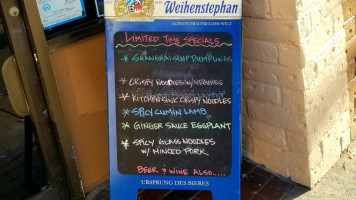 Weihenstephan
ÄLTESTE BRAUEREI DER WELT
LIMITED TIME SPECIALS
* SHANGHAI SOUP DUMPLINGS
* CRISPY NOODLES W/
* KITCHEN SINK CRISPY NOODLES
* SPICY CUMIN LAMB
* GINGER SAUCE EGGPLANT
* SPICY GLASS NOODLES
W/ MINCED PORK
BEER & WINE ALSO.....
URSPRUNG DES BIERES